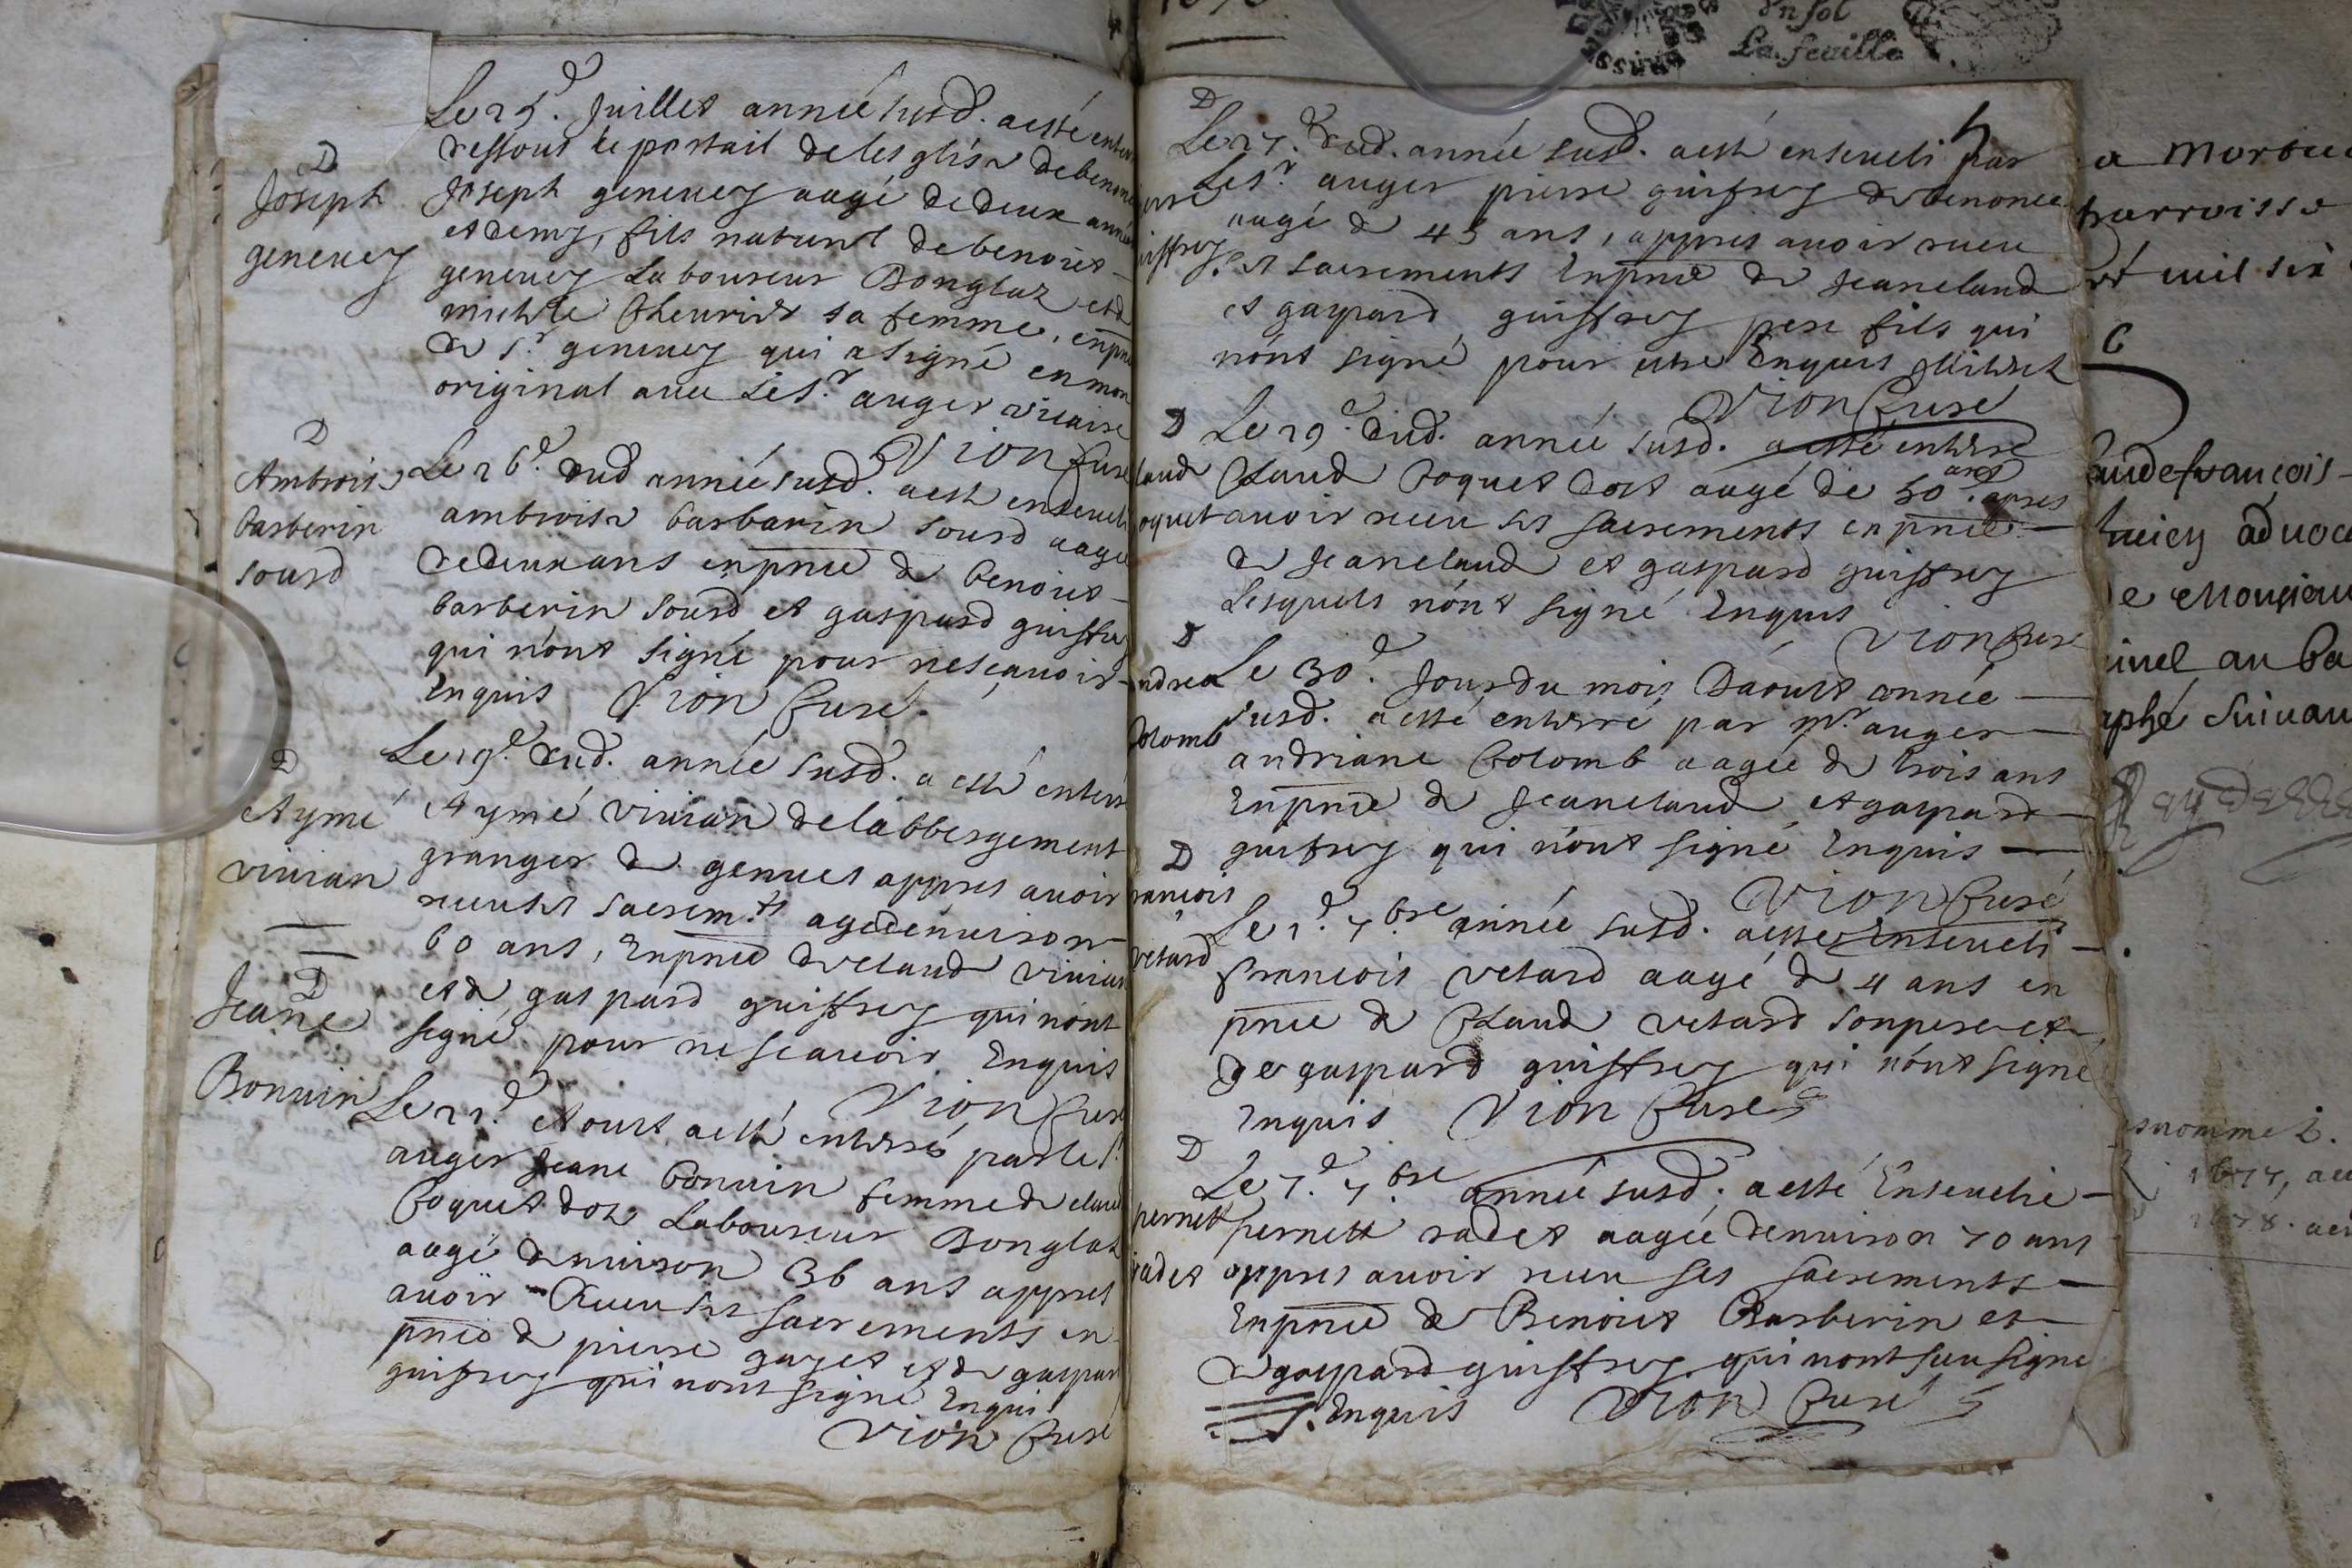 D
Joseph
geneuey
Le 25e. Juillet année susd. a esté enter
dessout le portail de lesglise de benon
Joseph geneuey aagé de deux année
et demy, fils naturel de benoict
geneuey Laboureur Donglaz et d
michele sa femme, enpnce
de sr. geneuey qui a signé en mon
original auec Le Sr. auger vicaire
Vion Curé
D
Ambrois
barberin
sourd
Le 26e. dud année susd. a esté enseueli
ambroise barbarin sourd aagé
de deux ans enpnce de benoict
barberin sourd et gaspard guiffrey
qui nont signé pour nescauoir
Enquis Vion Curé.
D
Aymé
viuian
Le 29e. dud. année susd. a esté enterré
Aymé viuian de labbergement
granger de genues appres auoir
receu ses sacremts agé denuiron
60 ans, Enpnce de claud viuian
et de gaspard guiffrey qui nont
signé pour ne scauoir Enquis
Vion Curé
D
Jeane
Bonuin
Le 21e. Aoust a esté enterré par le Sr.
auger Jeane bonuin femme de claud
Coquet dot Laboureur Donglat
aagé denuiron 36 ans appres
auoir Receu ses Sacrements en
pnce de pierre gayet et de gaspar
guiffrey qui nont signé Enqui
Vion Curé
D
Le 27e. dud. année susd. a esté enseueli par
Le Sr. auger pierre guiffrey de benonce
aagé de 45 ans, appres auoir receu
ses sacrements Enpnce de Jeanclaud
et gaspard guiffrey pere fils qui
nont signé pour estre Enquis
Vion Curé
D
laud
oquet
Le 29e. dud. année susd. a esté enterre
Claud Coquet dot aagé de 50 ans. apres
auoir receu ses sacrements enpnce
de Jeanclaud et gaspard guiffrey
Lesquels nont signé Enquis
Vion Curé
D
ndrea
Colomb
Le 30e. Jour du mois Daoust année
susd. a esté enterré par mr. auger
andriane Colomb aagée de trois ans
Enpnce de Jeanclaud et gaspard
guifrey qui nont signé Enquis
Vion Curé
D
rancois
vetard
Le 1e. 7bre année susd. a esté Enseueli
francois vetard aagé de 4 ans en
pnce de Claud vetard son pere et
de gaspard guiffrey qui nont signé
Enquis Vion Curé
D
pernett
radet
Le 7e. 7bre année susd. a esté Enseuelie
pernett radet aagée denuiron 70 ans
appres auoir receu ses sacrements
Enpnce de Benoict Barberin et
de gaspard guiffrey qui nont sceu signe
Enquis Vion Curé
un sol
La feuille
parroisse
mil six
C
audefrancois
aduoca
e Monsieur
au ba
aphé Suiuan